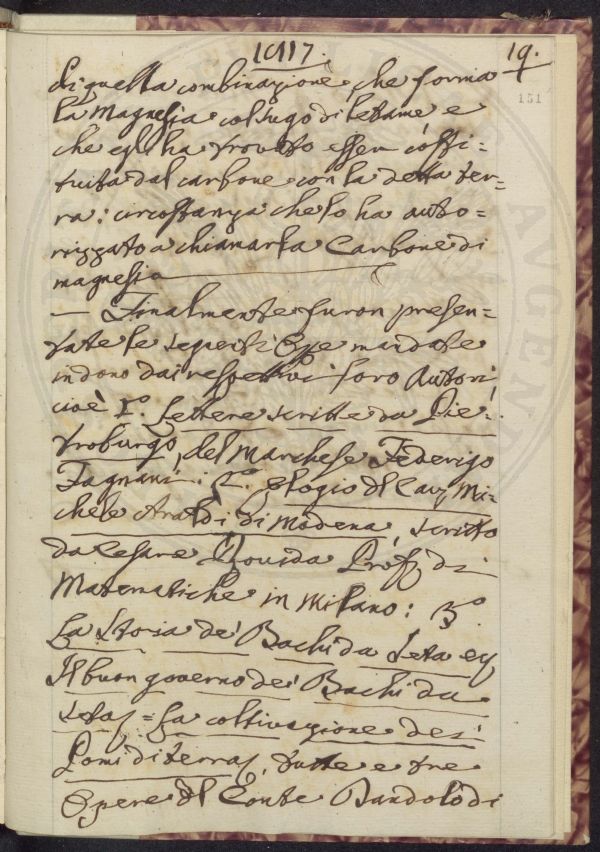 1817. 19.
151
di quella combinazione, che forma
la Magnesia col sugo di letame e
che egli ha trovato esser costi=
tuita dal carbone con la detta ter=
ra: circostanza che lo ha auto=
rizzato a chiamarla Carbone di
magnesio
— Finalmente furon presen=
tate le seguenti Opе mandate
in dono dai respettivi loro Autori,
cioè 1.º Lettere scritte da Pie=
troburgo, del Marchese Federigo
Fagnani: 2.º Elogio del Cav Mi=
chele Araldi di Modena, scritto
da Cesare Rovida Profs di
Matematiche in Milano: 3.º
La Storia de' Bachi da Seta ej
Il buon governo dei Bachi da
seta = La coltivazione dei
Pomi di terra, tutte e tre
Opere del Conte Dandolo di